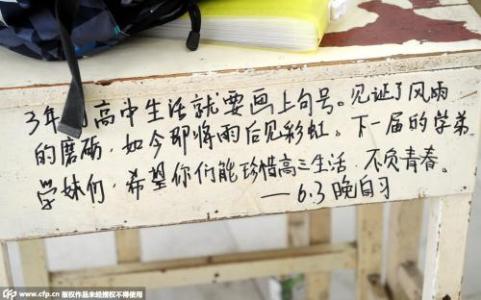 3年 高中生活就要画上句号。见证了风雨
的磨砺,如今即将雨后见彩虹。下一届的学弟
学妹们,希望你们能珍惜高三生活,不负青春。
——6.3晚自习
www.cfp.cn 版权作品未经授权不得使用